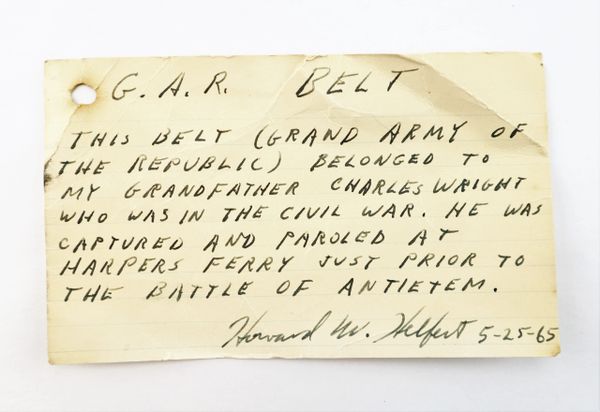 G.A.R. BELT
THIS BELT (GRAND ARMY OF
THE REPUBLIC) BELONGED TO
MY GRANDFATHER CHARLES WRIGHT
WHO WAS IN THE CIVIL WAR. HE WAS
CAPTURED AND PAROLED AT
HARPERS FERRY JUST PRIOR TO
THE BATTLE OF ANTIETEM.
Howard W. Helfert 5-25-65